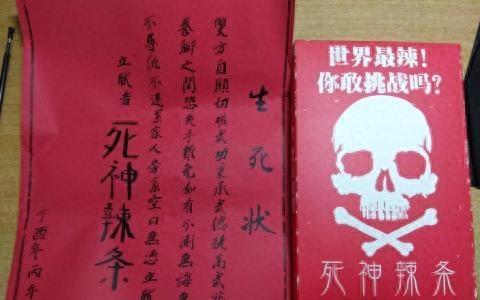 生死状
雙方自願切磋武功秉承武德提高武
拳脚之間恐失手難免如有不測無悔無
不尋仇不連累家人旁系空口無憑立
立狀者 死神辣条
丁酉年丙午
世界最辣!
你敢挑战吗?
死神辣条